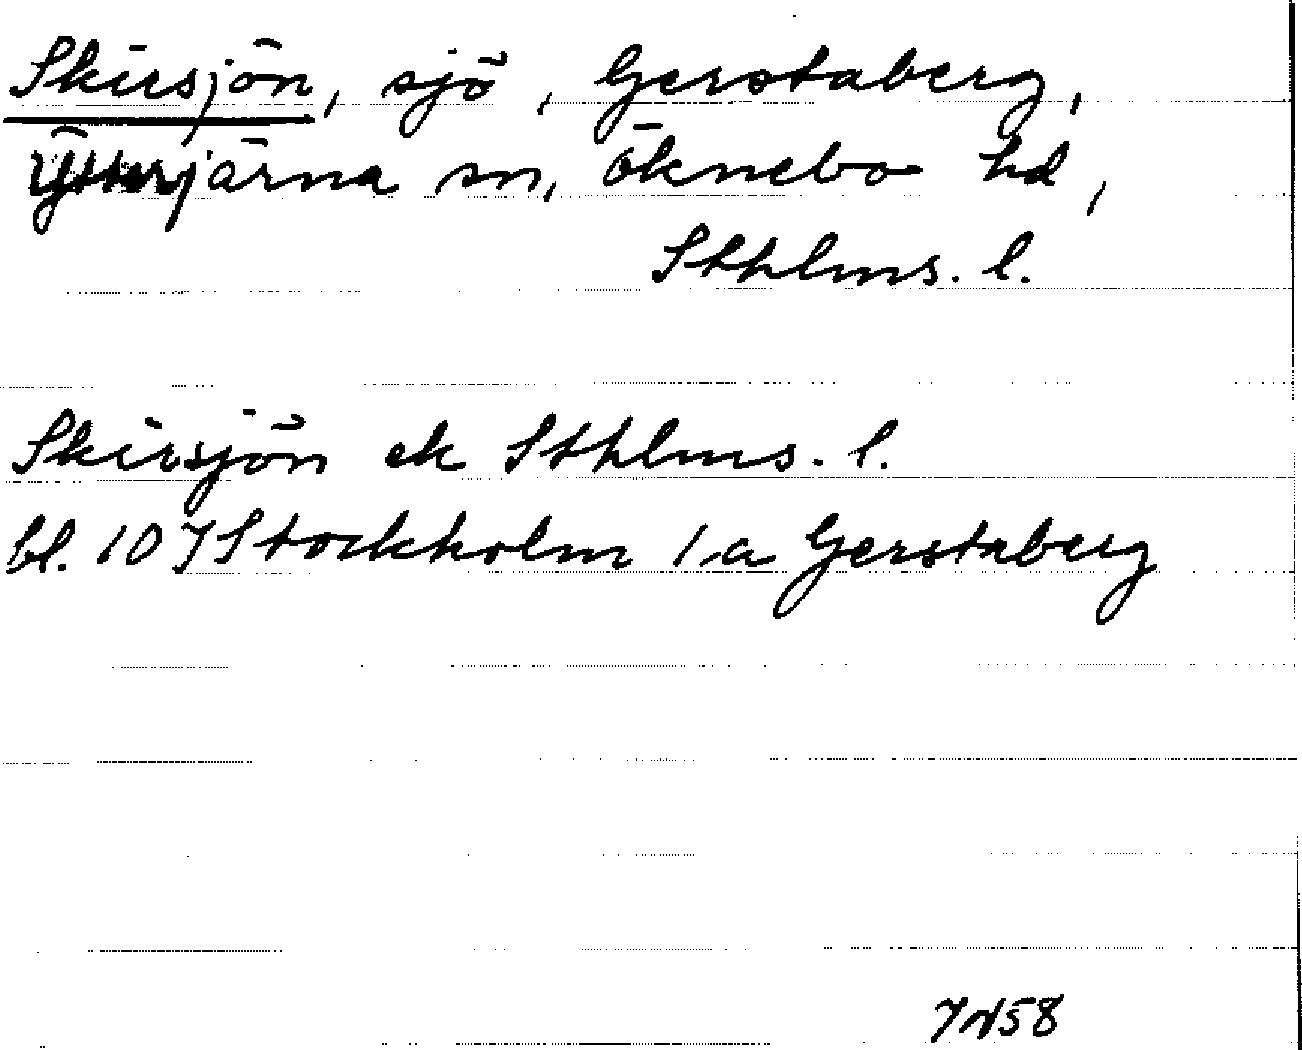 Skirsjön, sjö, Gerstaberg,
Ytterjärna sn, Öknebo hd,
Sthlms. l.
Skirsjön ek Sthlms. l.
bl. 107 Stockholm 1a Gerstaberg
58